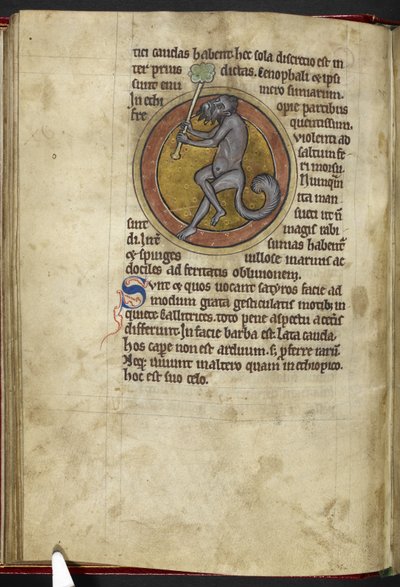 tici caudas habent. hec sola discretio est in
ter prius dictas. Cenophali & ipsi
sunt eiu numero simiarum.
In ethi opie partibus
fre quentissimi.
violenti ad
saltum fe
ri morsu.
Nunquam
ita man
sueti ut non
sint magis rabi
di. Inter simias habentur
& spinges uillose in armis ac
dociles ad feritatis obliuionem.
Sunt & quos uocant satyros facie ad
modum grata gesticulatis motibus in
quiete. Callitrices. toto pene aspectu a ceteris
differunt. In facie barba est. Lata cauda.
hos capere non est arduum. s; proferre rarum.
Neque uiuunt in altero quam in ethiopico.
hoc est suo celo.